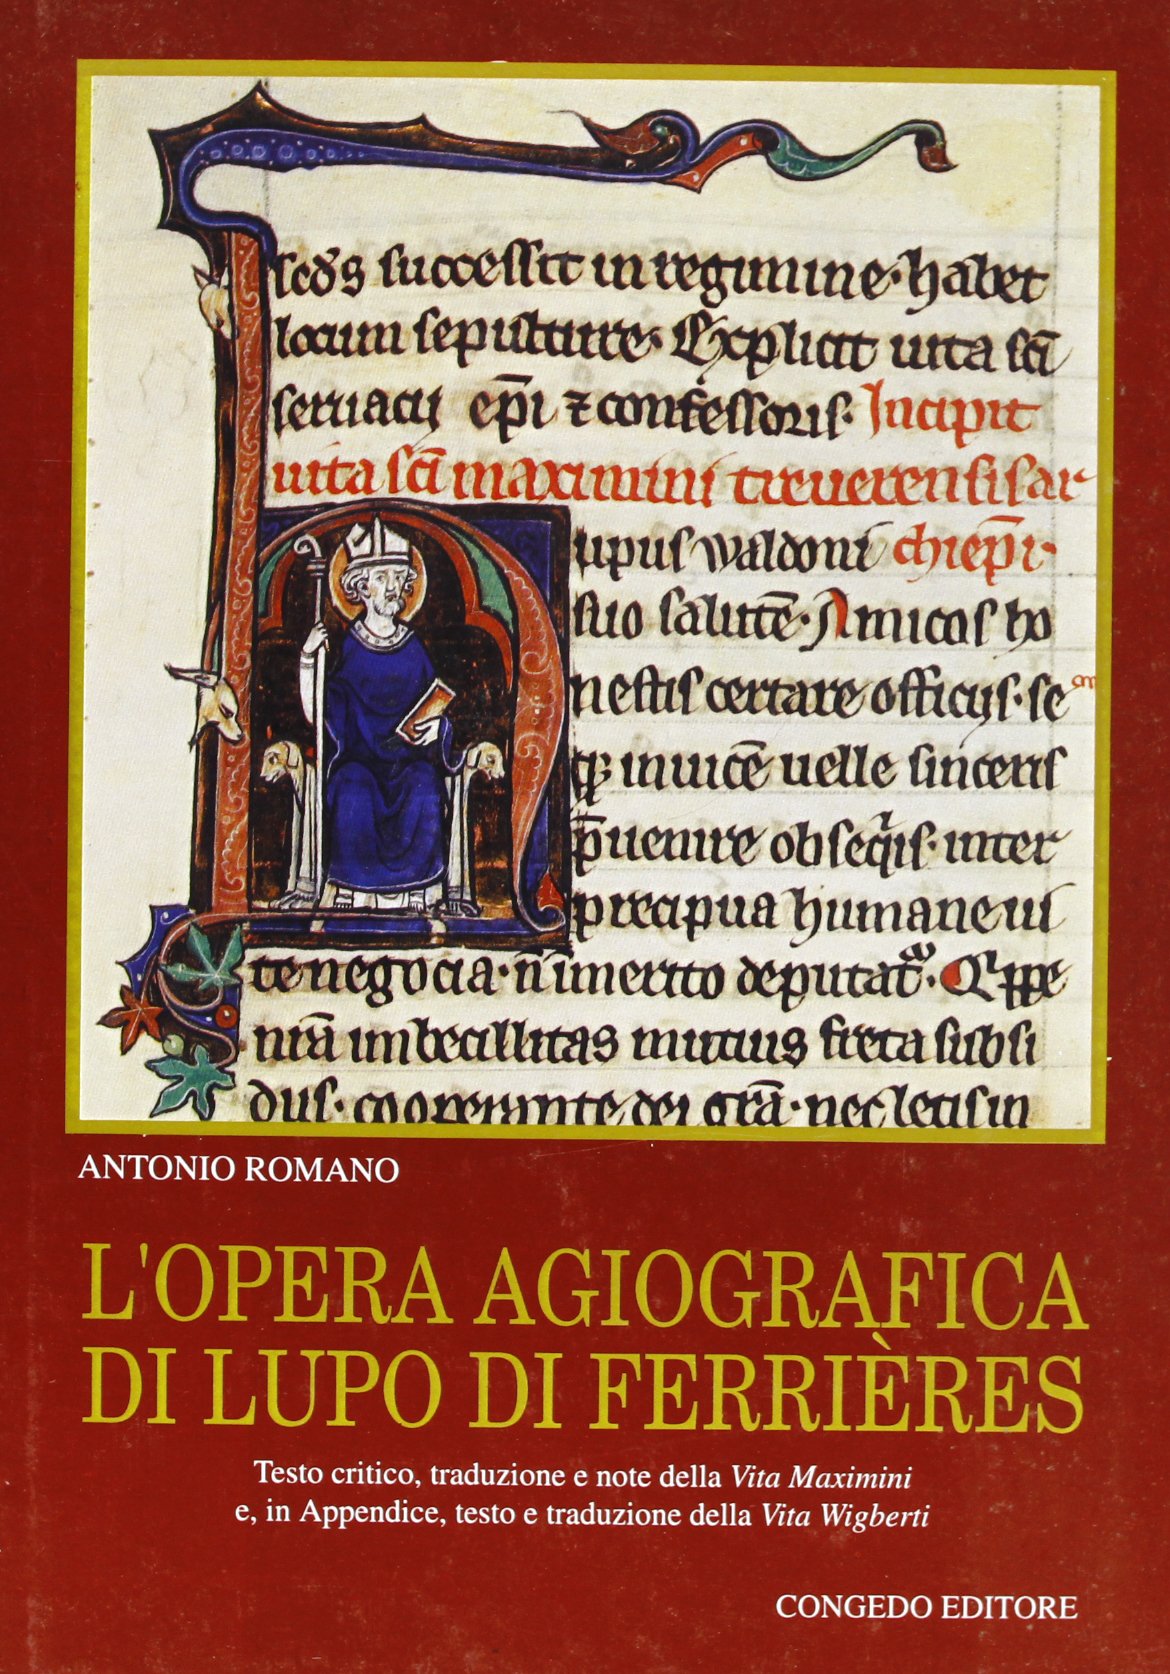 scd̄s successit in regimine. habet
locum sepulture. Explicit uita sc̄i
seruacij ep̄i ⁊ confessoris. Incipit
uita sc̄i maximini treuerensis ar
upus waldoni chiep̄i.
suo salutē. Amicos ho
nestis certare officijs. se
qꝫ inuicē uelle sinceris
p̄uenire obseqis. inter
precipua humane ui
te negocia. n̄ imerito deputat̄.
nr̄a imbecillitas mutuis freta subsi
dijs. cooperante dei gr̄a. nec letis in
ANTONIO ROMANO
L'OPERA AGIOGRAFICA
DI LUPO DI FERRIÈRES
Testo critico, traduzione e note della Vita Maximini
e, in Appendice, testo e traduzione della Vita Wigberti
CONGEDO EDITORE